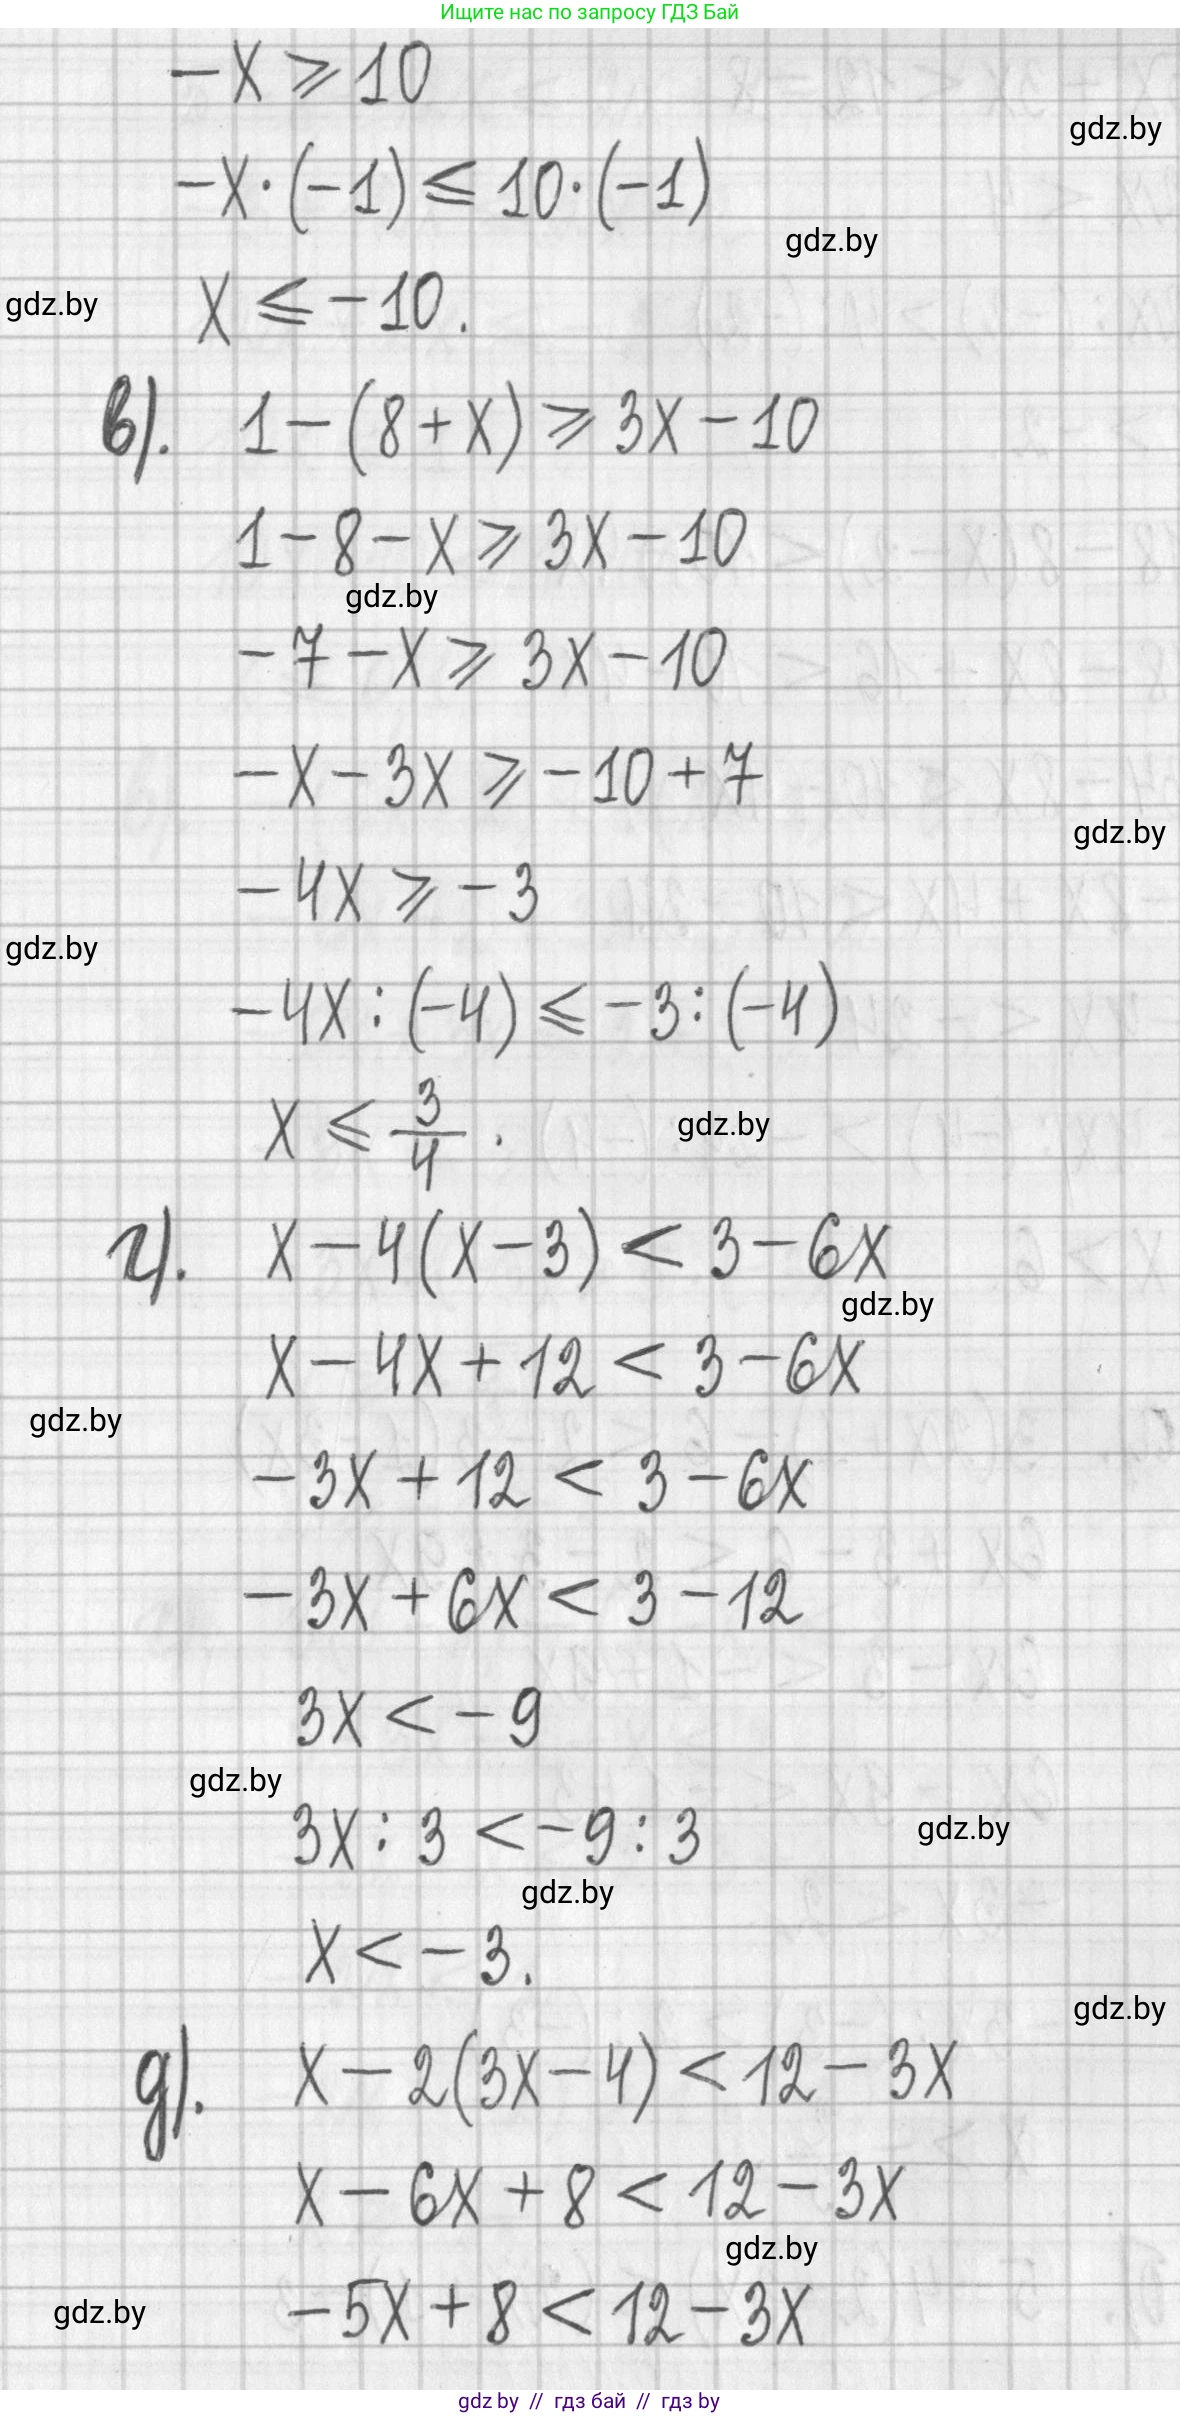 Ищите нас по запросу ГДЗ Бай
-x ⩾ 10
gdz.by
-x·(-1) ⩽ 10·(-1)
gdz.by
gdz.by
x ⩽ -10.
в). 1-(8+x) ⩾ 3x-10
1-8-x ⩾ 3x-10
gdz.by
-7-x ⩾ 3x-10
-x-3x ⩾ -10+7
gdz.by
-4x ⩾ -3
gdz.by
-4x:(-4) ⩽ -3:(-4)
x ⩽ 3/4.
gdz.by
г). x-4(x-3) < 3-6x
gdz.by
x-4x+12 < 3-6x
gdz.by
-3x+12 < 3-6x
-3x+6x < 3-12
3x < -9
gdz.by
3x:3 < -9:3
gdz.by
gdz.by
x < -3.
gdz.by
д). x-2(3x-4) < 12-3x
x-6x+8 < 12-3x
gdz.by
gdz.by
-5x+8 < 12-3x
gdz by // гдз бай // гдз by